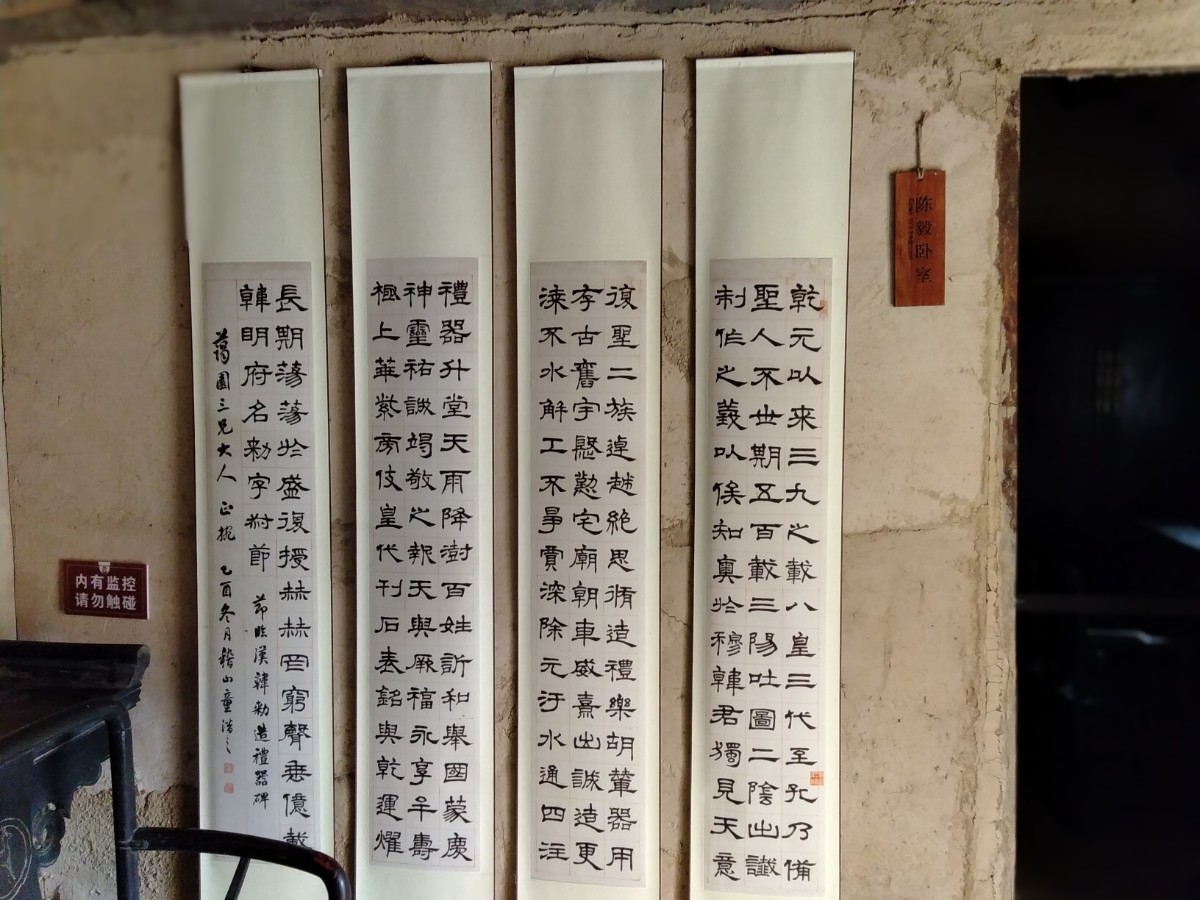 乾元以来三九之載八皇三代至孔乃備
聖人不世期五百載三陽吐圖二陰出讖
制作之義以俟知奧於穆韓君獨見天意
復聖二族逴越絕思脩造禮樂胡輦器用
存古舊宇慇懃宅廟朝車威熹出誠造更
漆不水解工不爭賈深除元汙水通四注
禮器升堂天雨降澍百姓訢和舉國蒙慶
神靈祐誠竭敬之報天與厥福永享牟壽
極上華紫旁伎皇代刊石表銘與乾運燿
長期蕩蕩於盛復授赫赫罔窮聲垂億載
韓明府名勑字叔節
節臨漢韓勑造禮器碑
藹園三兄大人 正捥 乙酉冬月稽山童
陈毅卧室
内有监控
请勿触碰